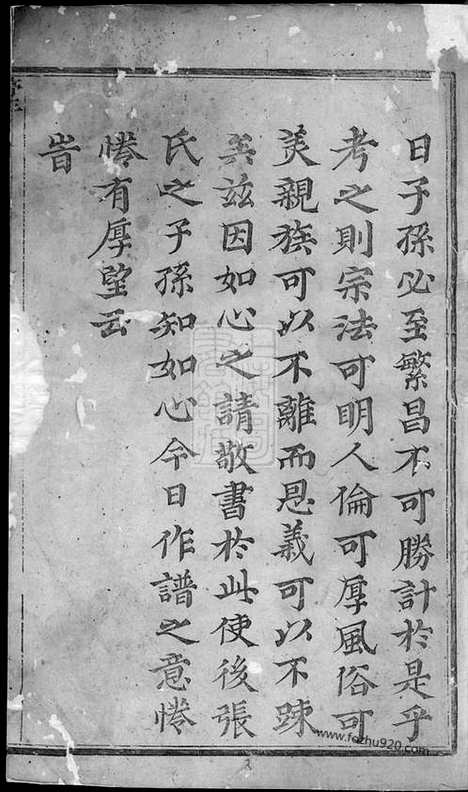 日子孫必至繁昌不可勝計於是乎
考之則宗法可明人倫可厚風俗可
美親族可以不離而恩義可以不踈
矣兹因如心之請敬書於此使後張
氏之子孫知如心今日作譜之意惓
惓有厚望云
旹
www.fozhu920.com